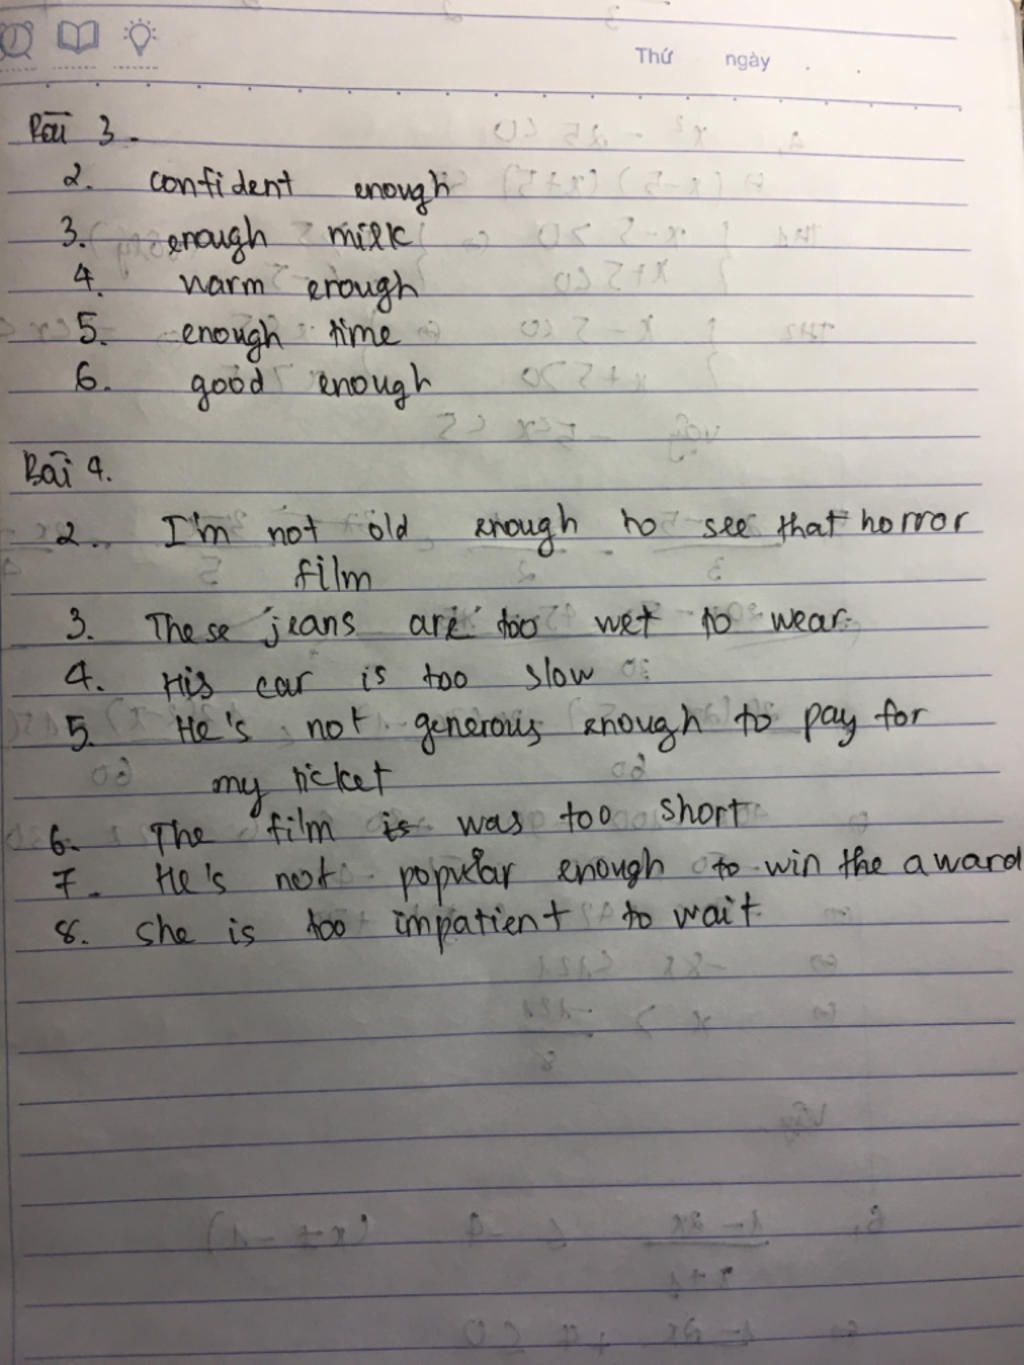 Thứ ngày
Bài 3.
2. confident enough
3. enough milk
4. warm enough
5. enough time
6. good enough
Bài 4.
2. I'm not old enough to see that horror
film
3. These jeans are too wet to wear.
4. His car is too slow
5. He's not generous enough to pay for
my ticket
6. The film is was too short
7. He's not popular enough to win the award
8. she is too impatient to wait